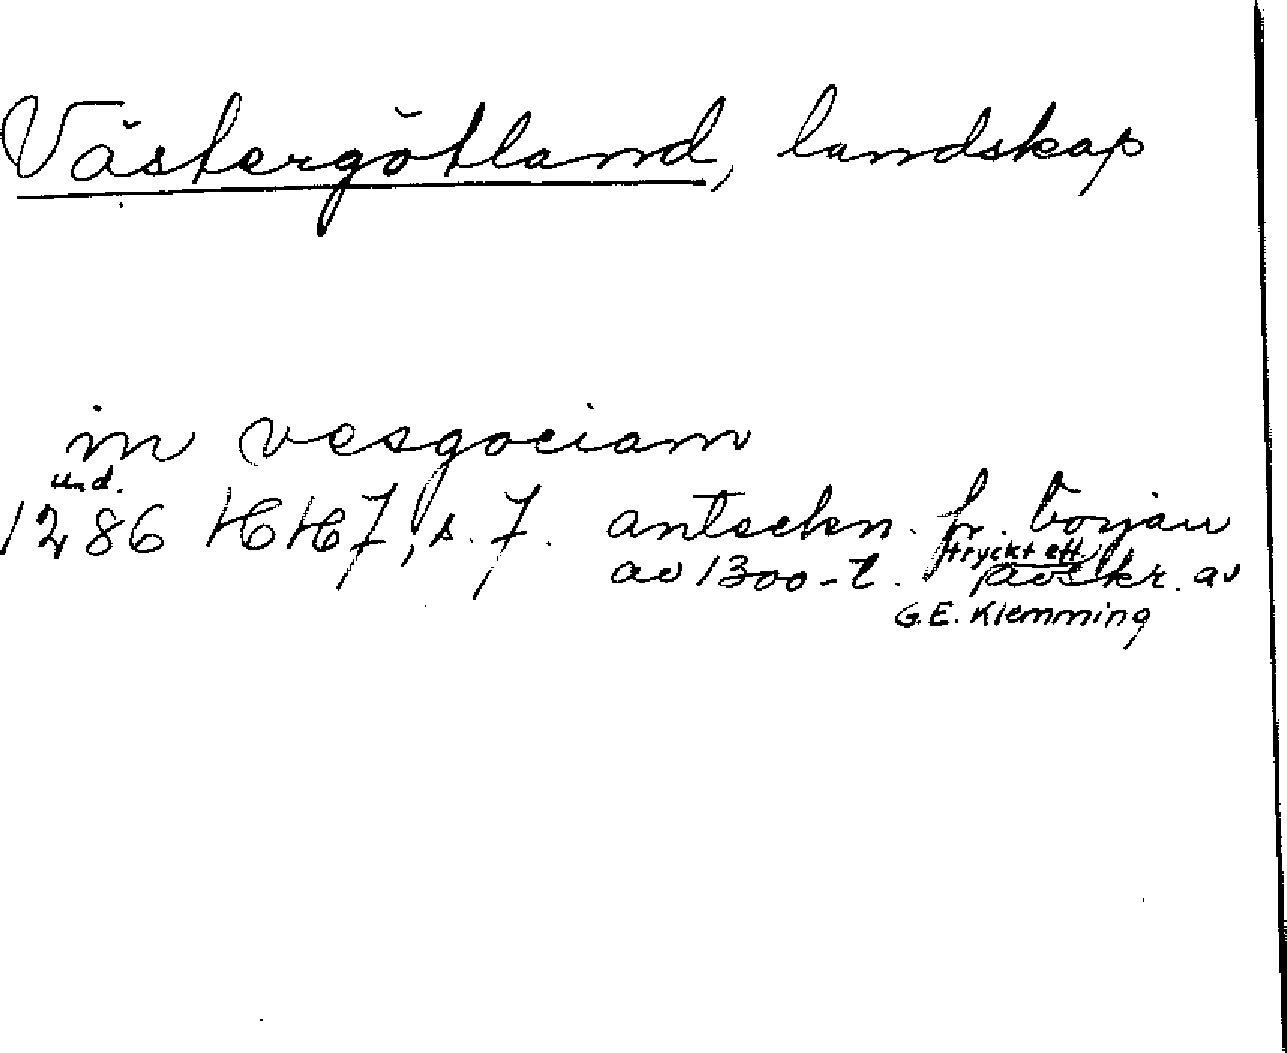 Västergötland, landskap
in vesgociam
und.
1286 HH 7, s. 7. antsckn. fr. början
av 1300-t. tryckt eft. avskr. av
G.E. Klemming